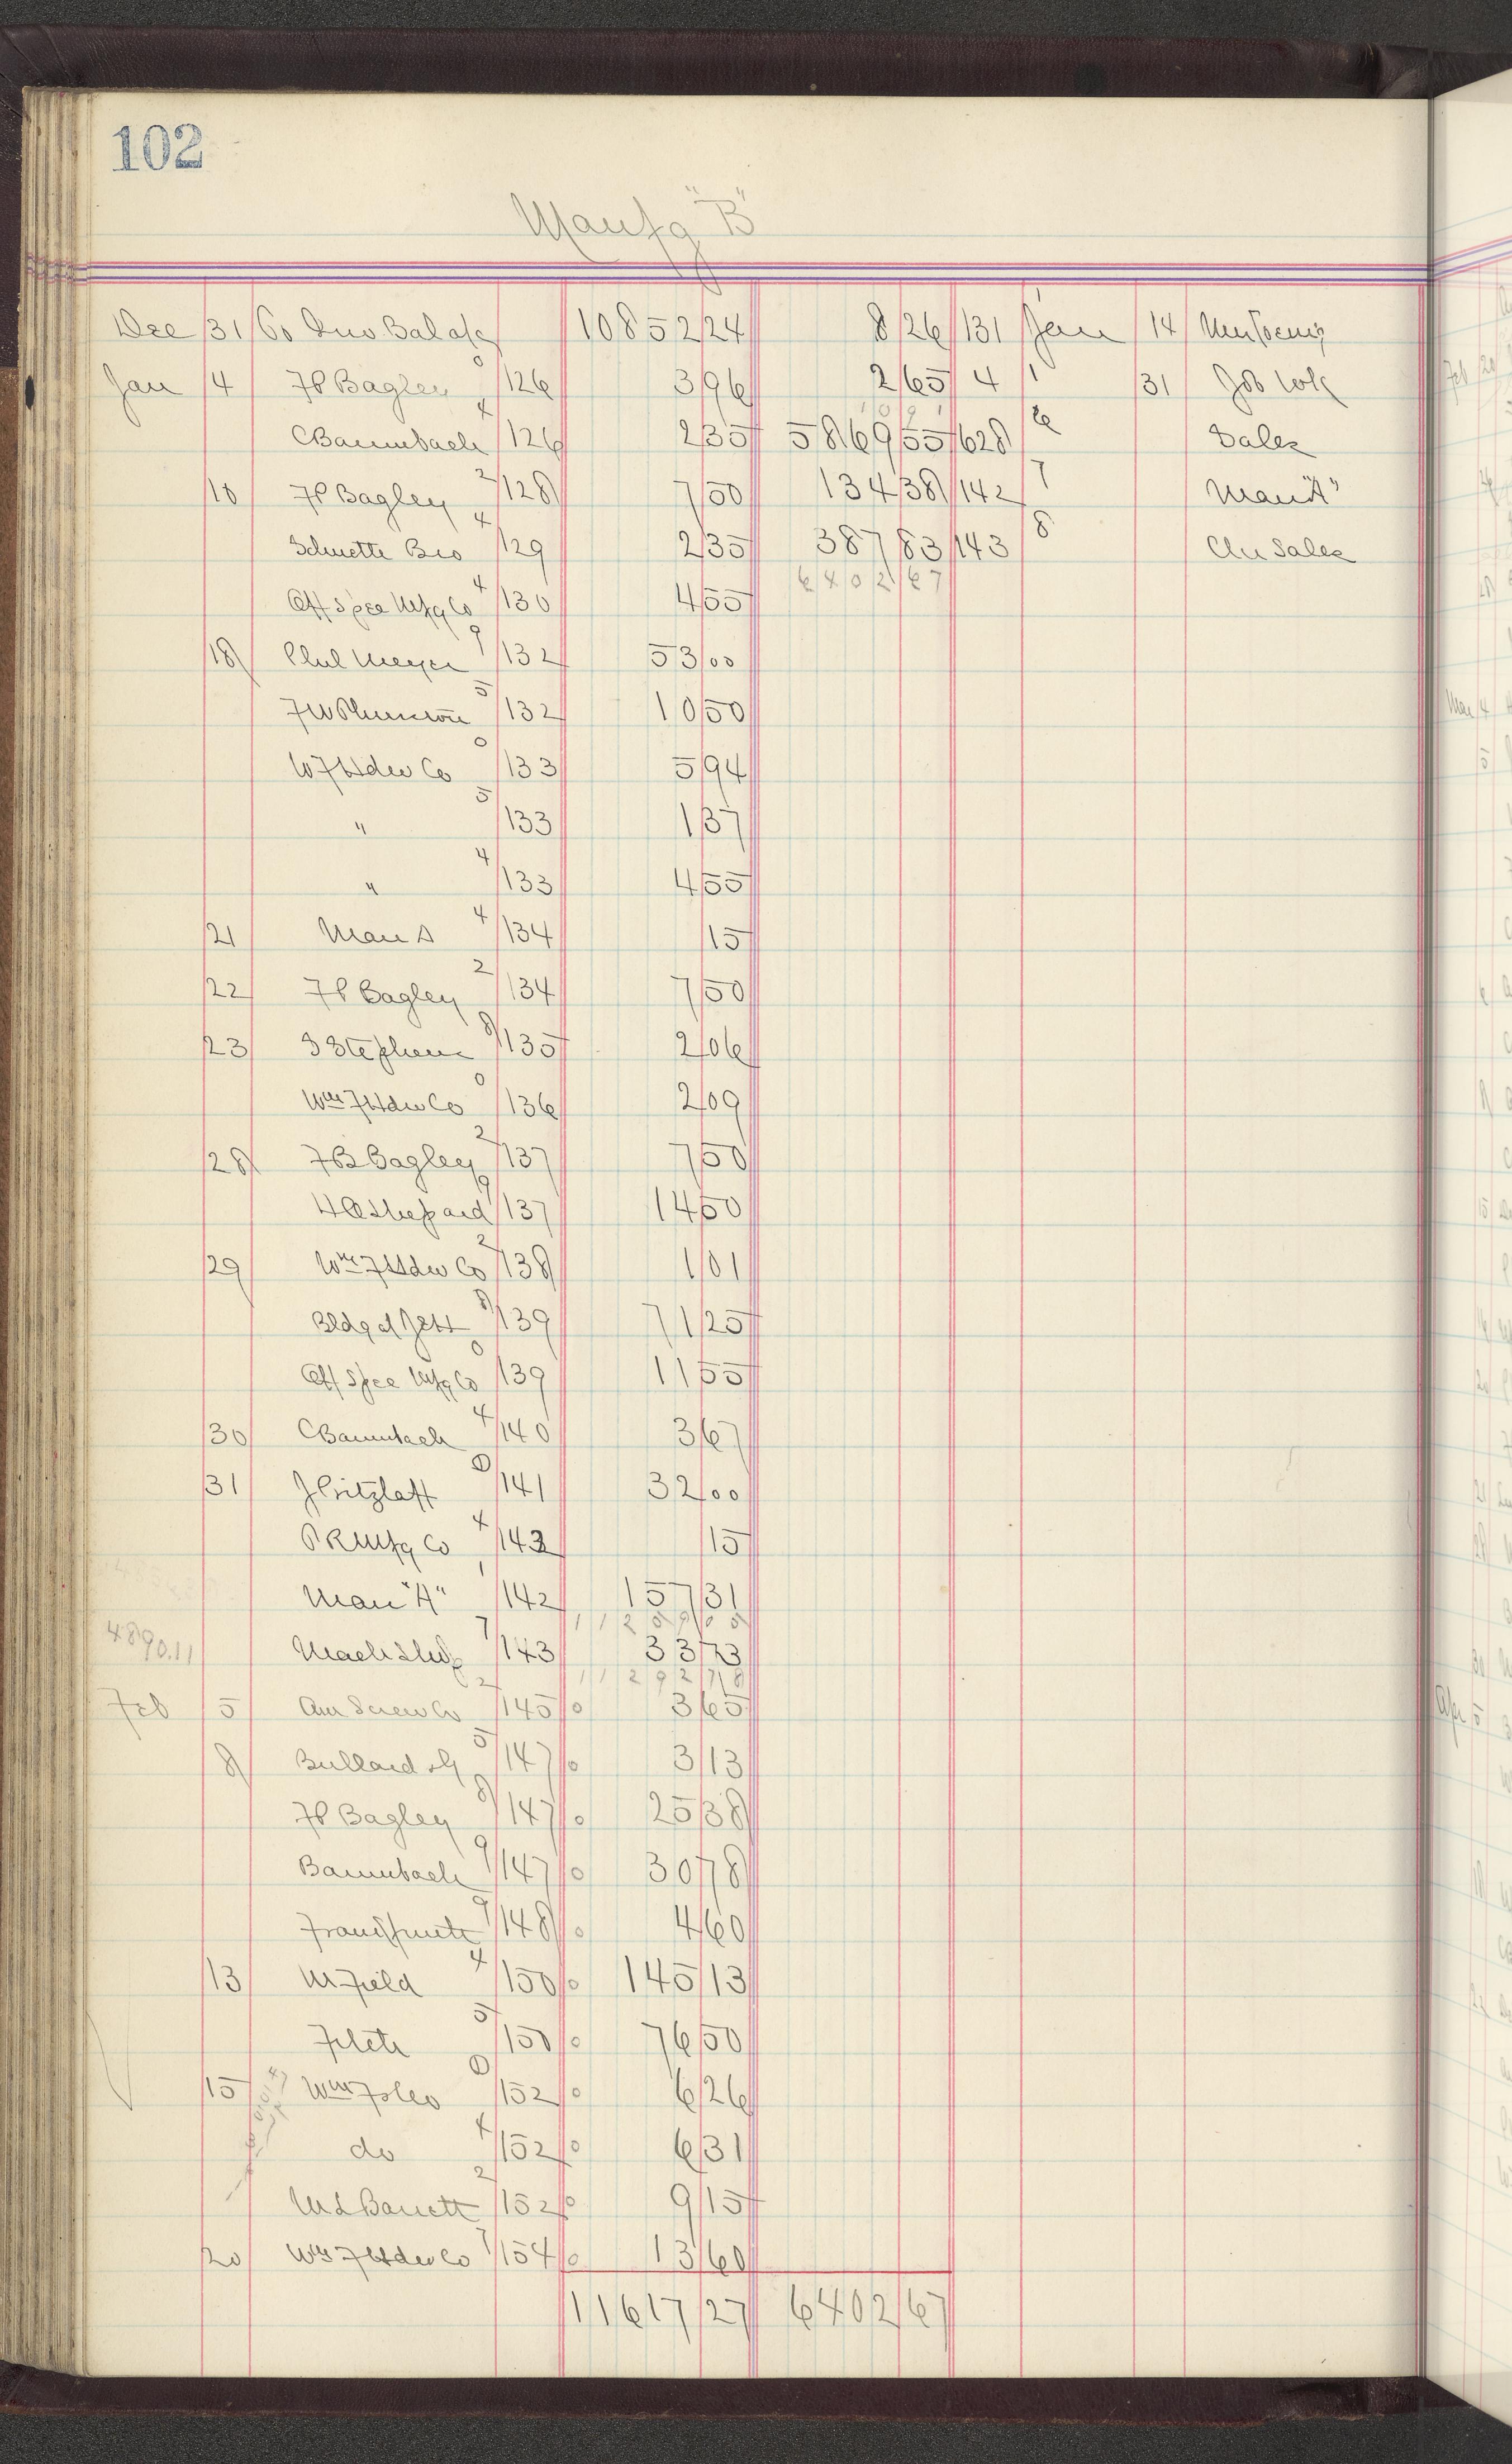 102
Manfg "B"
Dec 31 To Inv Bal 10852 24 8 26 131 Jan 14
Jan 4 FP Bagley 0/126 3 96 2 65 4 1 31 Job Wk
CBaumbach 4/126 2 35 5869 55 628 6 Sales
18 FP Bagley 2/128 7 50 134 38 142 7 Man "A"
Schuette Bro 4/129 2 35 387 83 143 8 Sales
Off Spee Mfg Co 4/130 4 55 6402 67
18 Phil Meyer 9/132 53 00
5/132 10 50
W F Hdw Co 0/133 5 94
" 5/133 1 37
" 4/133 4 55
21 Man A 4/134 15
22 FP Bagley 2/134 7 50
23 S Stephens 8/135 2 06
Wm F Hdw Co 0/136 2 09
28 FB Bagley 2/137 7 50
H A Shepard 9/137 14 50
29 Wm F Hdw Co 2/138 1 01
Bldg 8/139 71 25
Off Spee Mfg Co 0/139 11 55
30 CBaumbach 4/140 3 67
31 J Pritzlaff 0/141 32 00
P R Mfg Co 4/142 15
Man "A" 1/142 157 31
11259 05
4890.11 Mach Shop 7/143 33 73
11292 78
Feb 5 Am Screw Co 2/145 0 3 65
8 Bullard & G 5/147 0 3 13
FP Bagley 8/147 0 25 38
Baumbach 9/147 0 30 78
9/148 0 4 60
13 M Field 4/150 0 145 13
5/150 0 76 50
15 0/152 0 6 26
do 4/152 0 6 31
M L Barrett 2/152 0 9 15
20 Wm F Hdw Co 7/154 0 13 60
11617 27 6402 67